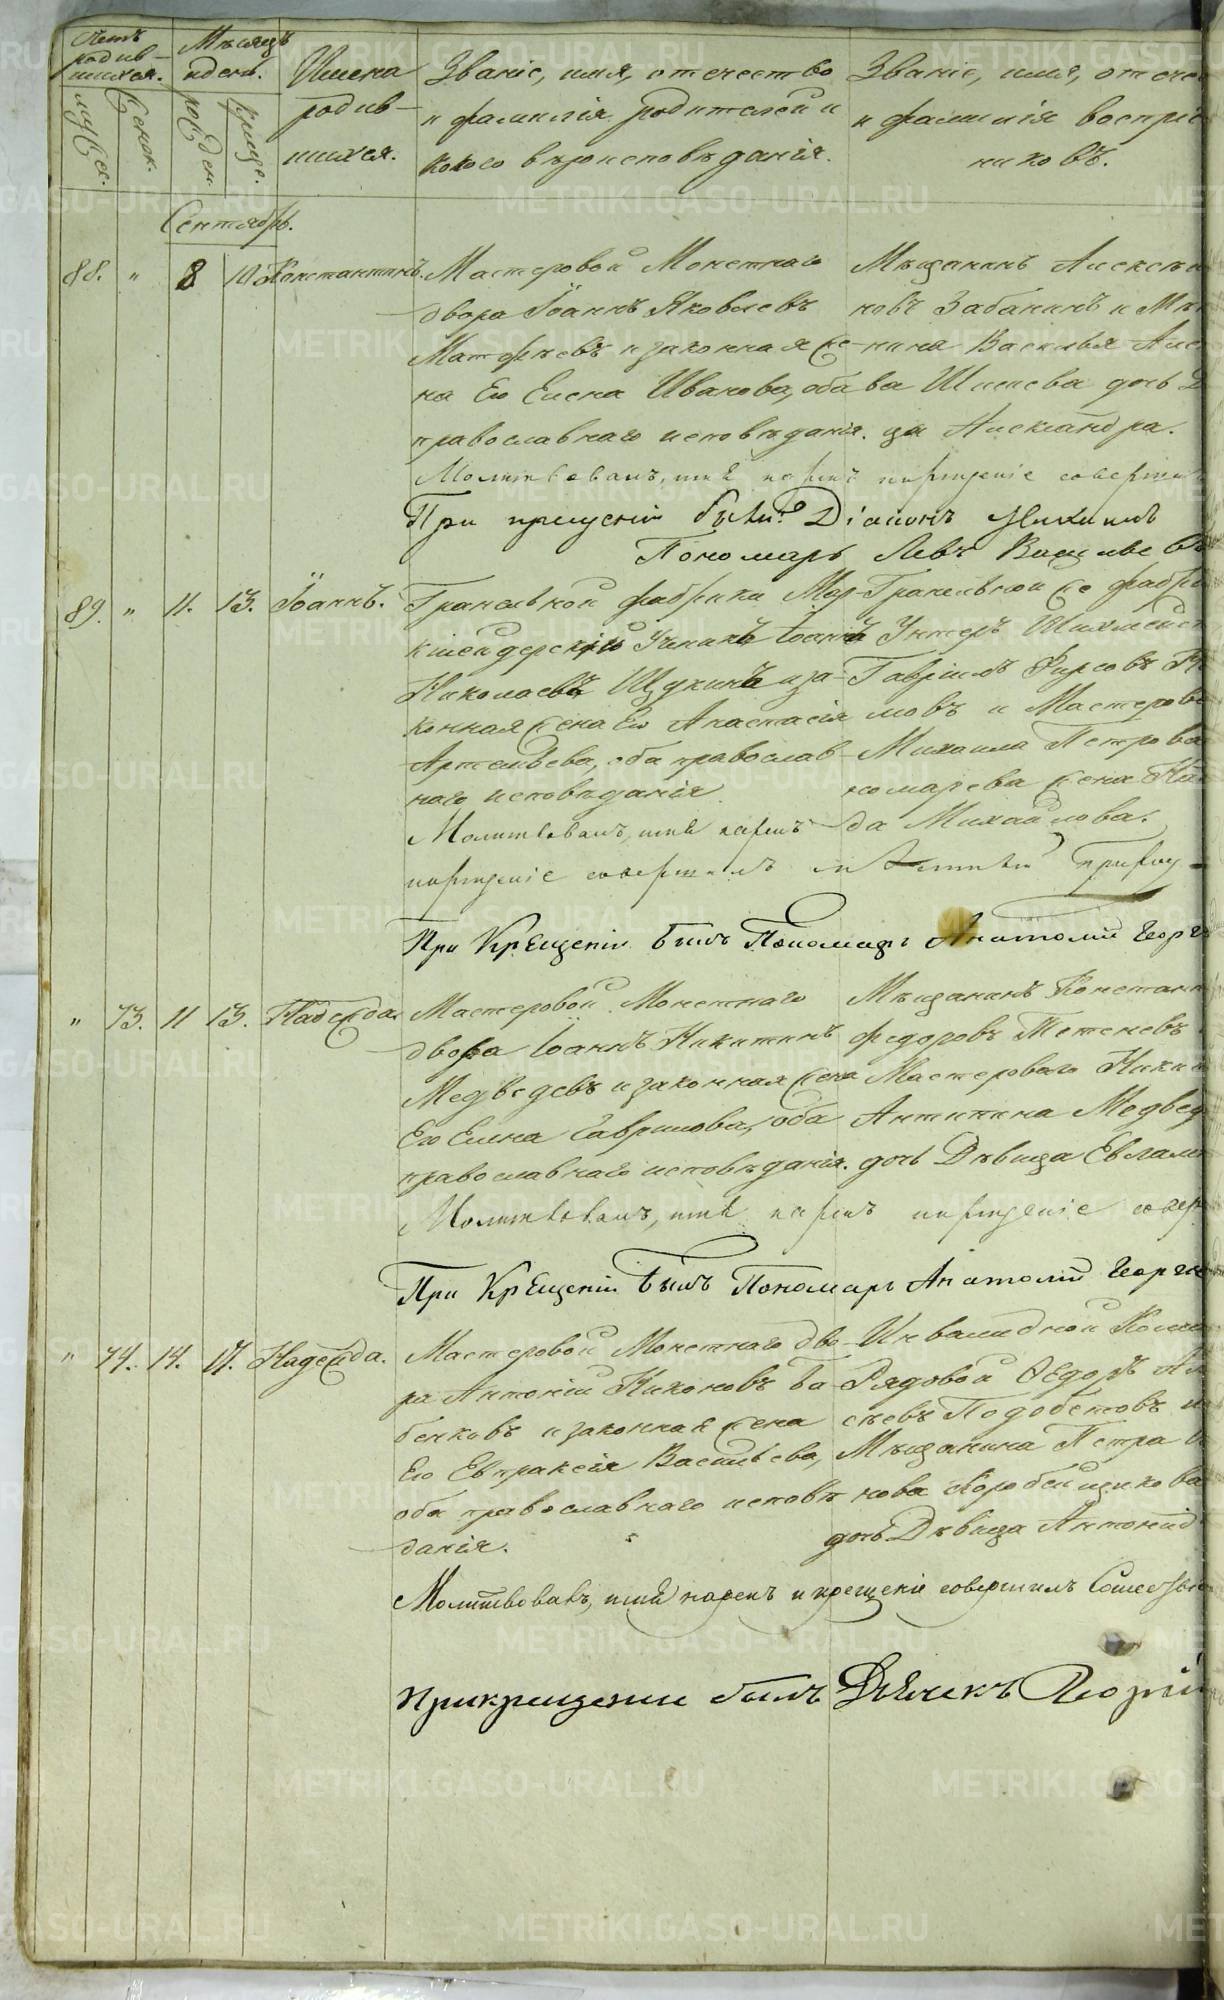 Счетъ родив-шихся.
Мѣсяцъ и день.
Имена родив-шихся.
Званіе, имя, отечество и фамилія родителей и какого вѣроисповѣданія.
Званіе, имя, отече и фамилія воспрі никовъ.
муж. женск. рожден. креще.
Сентябрь.
88. " 8 10 Константинъ.
Мастеровой Монетнаго
двора Іоаннъ Яковлевъ
Матфѣевъ и законная же-
на Его Елена Иванова, оба
православнаго исповѣданія.
Мѣщанинъ Алексѣй
новъ Забанинъ и Мѣ
нина Василья Алек
ва Шишева дочь Д
ца Александра.
Молитвовалъ, имя нарекъ крещеніе соверши
При крещеніи были: Діаконъ
Пономарь Левъ Василье въ
89. " 11. 13. Іоаннъ.
Гранильной фабрики Мар-
кшейдерскій Ученикъ Іоаннъ
Николаевъ Щукинъ и за-
конная жена Его Анастасія
Артемьева, оба православ-
наго исповѣданія.
Гранильной же фабри
Унтеръ Шихмейст
Гавріилъ Фирсовъ
мовъ и Мастерова
Михаила Петрова
номарева жена
да Михайлова.
Молитвовалъ, имя нарекъ
крещеніе совершилъ
При Крещеніи былъ Пономарь Анатолій Георгі
" 73. 11 13. Надежда.
Мастеровой Монетнаго
двора Іоаннъ Никитинъ
Медвѣдевъ и законная жена
Его Елена Гаврилова, оба
православнаго исповѣданія.
Мѣщанинъ Констант
Федоровъ Тетеневъ
Мастероваго Ники
Антипина Медвед
дочь Дѣвица Евлами
Молитвовалъ, имя нарекъ крещеніе совер
При Крещеніи былъ Пономарь Анатолій Георгі
" 74. 14. 17. Надежда.
Мастеровой Монетнаго дво-
ра Антоній Никоновъ Ба-
бенковъ и законная жена
Его Евпраксія Васильева,
оба православнаго исповѣ
данія.
Инвалидной Коман
Рядовой Ѳедоръ Ал
сѣевъ Подобѣтовъ и
Мѣщанина Петра
нова Коробейщикова
дочь Дѣвица Антонид
Молитвовалъ, имя нарекъ и крещеніе совершилъ
При крещеніи былъ Дьячекъ Георгій
METRIKI.GASO-URAL.RU